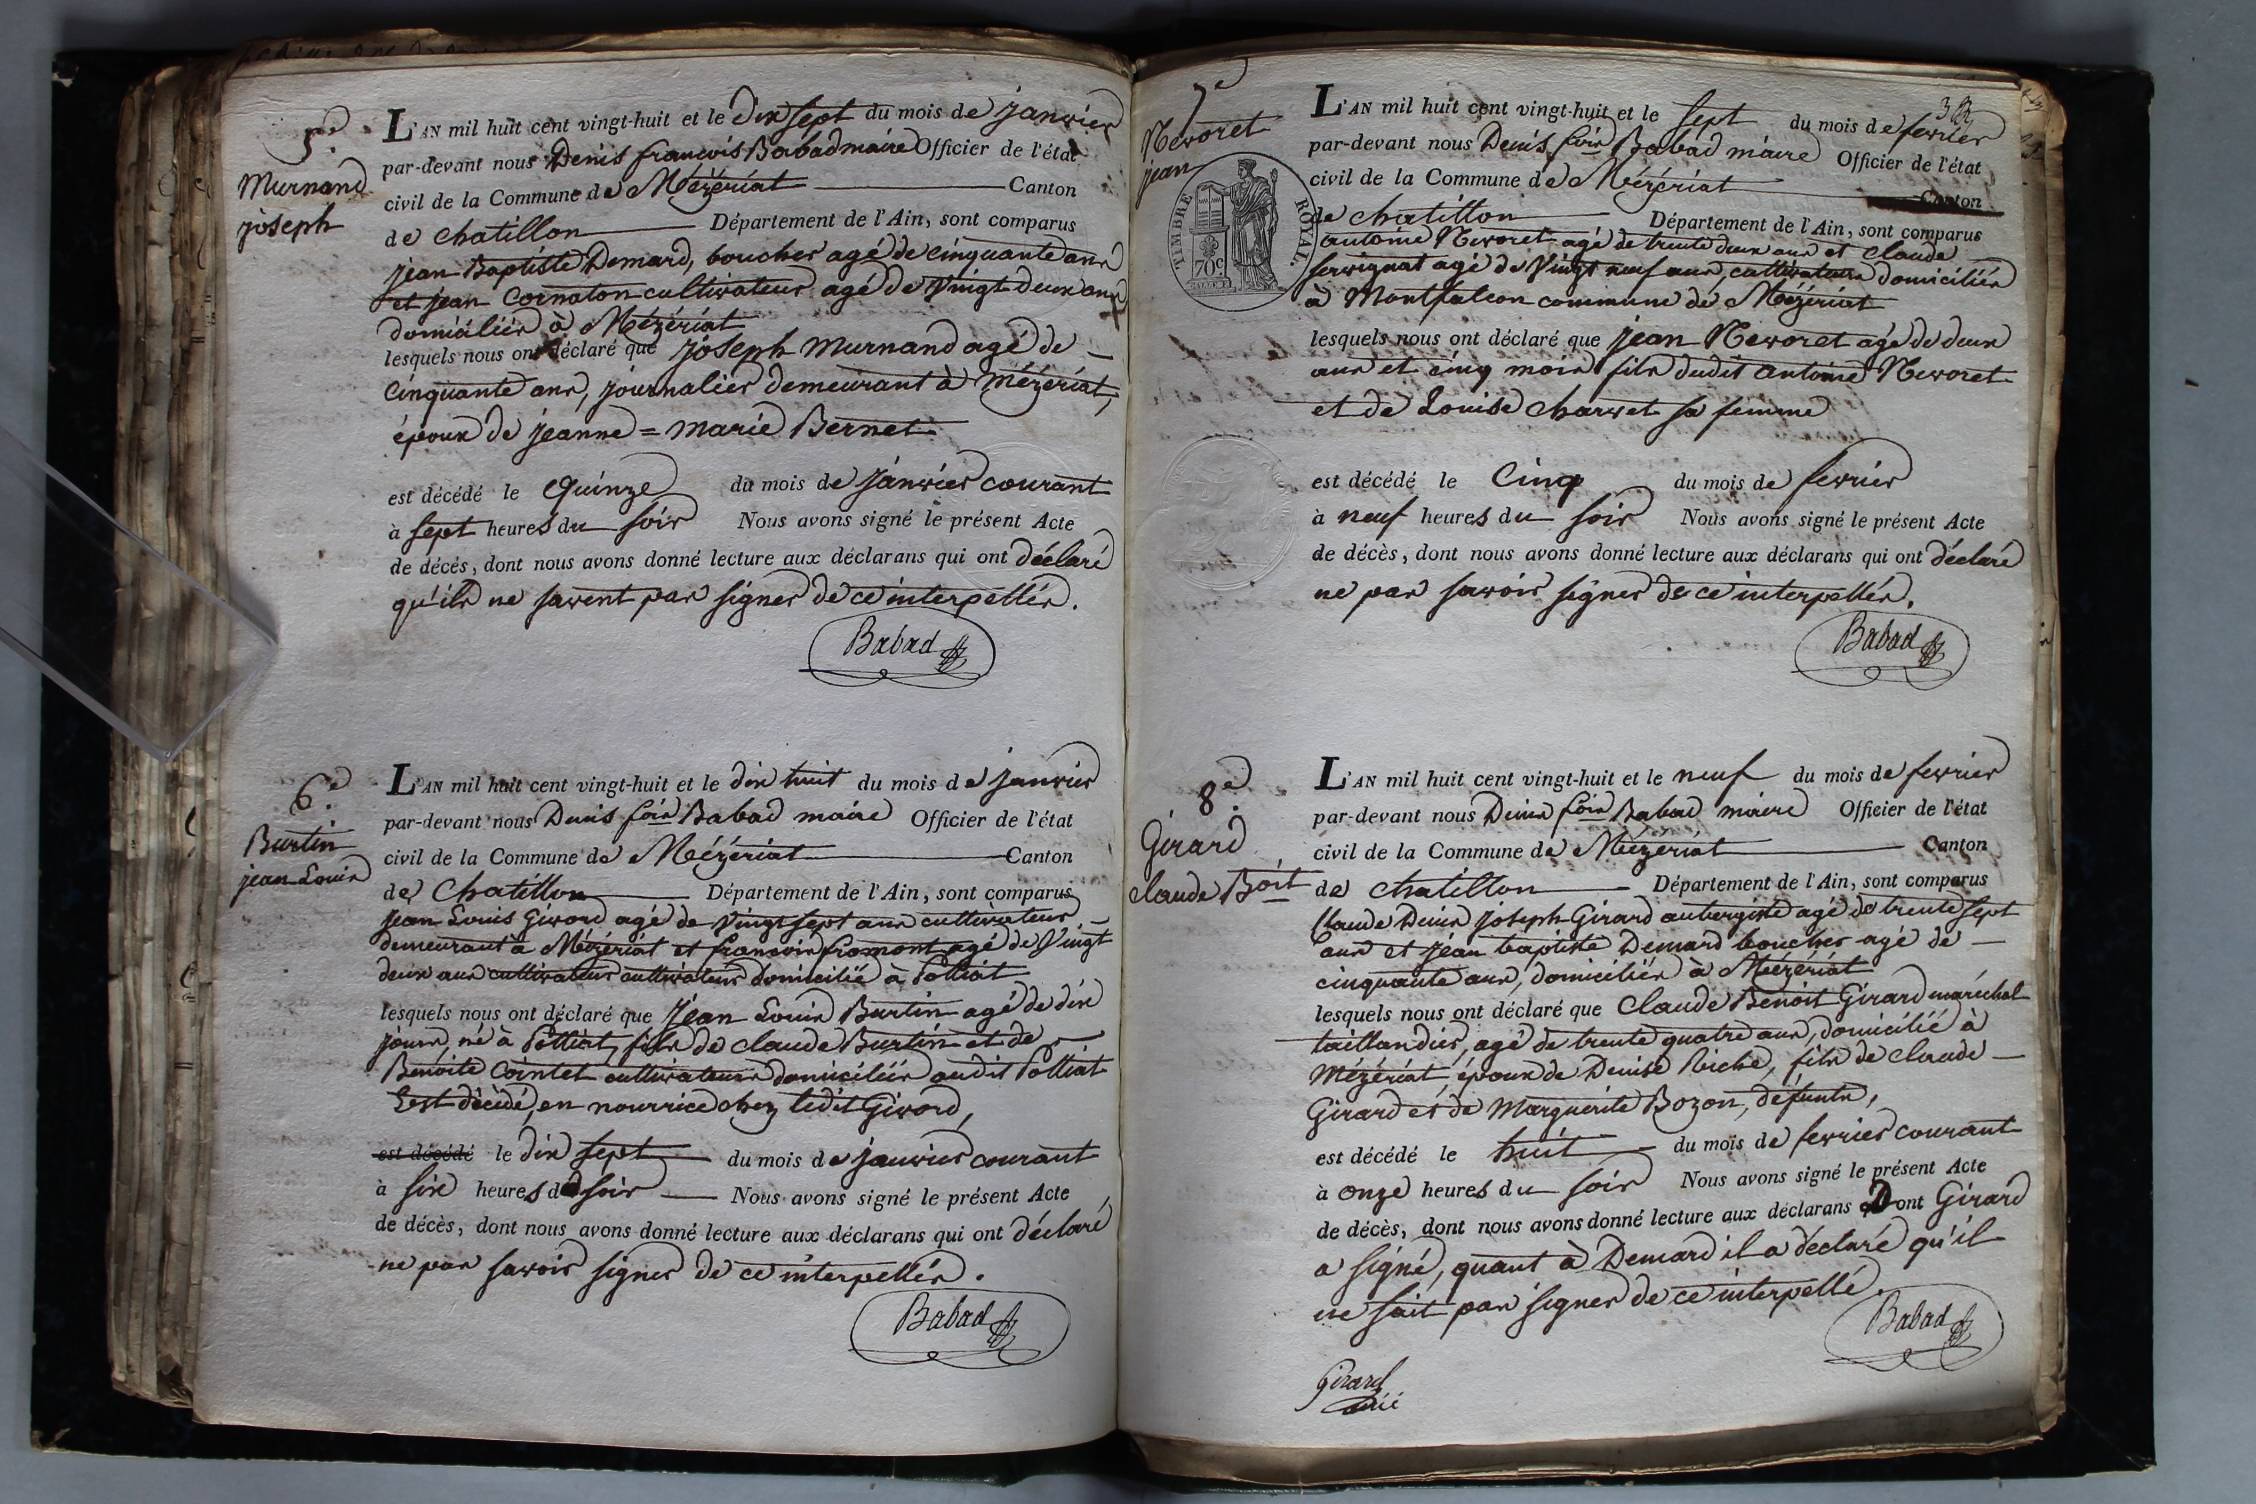 5.e
Murnand
joseph
L'AN mil huit cent vingt-huit et le dix sept du mois de janvier
par-devant nous Denis françois Babad maire Officier de l'état
civil de la Commune de Mézériat Canton
de chatillon Département de l'Ain, sont comparus
jean Baptiste Demard, boucher agé de cinquante ans
et jean Cornaton cultivateur agé de vingt deux ans
domiciliés à Mézériat
lesquels nous ont déclaré que joseph Murnand agé de
cinquante ans, journalier demeurant à Mézériat,
époux de jeanne = marie Bernet
est décédé le quinze du mois de janvier courant
à sept heures du soir Nous avons signé le présent Acte
de décès, dont nous avons donné lecture aux déclarans qui ont déclaré
qu'ils ne savent pas signer de ce interpellés.
Babad
6.e
Burtin
jean Louis
L'AN mil huit cent vingt-huit et le dix huit du mois de janvier
par-devant nous Denis fois Babad maire Officier de l'état
civil de la Commune de Mézériat Canton
de Chatillon Département de l'Ain, sont comparus
jean Louis Givord agé de vingt sept ans cultivateur
demeurant à Mézériat et françois fromont agé de vingt
deux ans cultivateur cultivateur domicilié à Polliat
lesquels nous ont déclaré que jean Louis Burtin agé de dix
jours, né à Polliat, fils de claude Burtin et de
Benoite Cointet cultivateurs domiciliés audit Polliat
Est décédé, en nourrice chez ledit Givord,
est décédé le dix sept du mois de janvier courant
à six heures du soir Nous avons signé le présent Acte
de décès, dont nous avons donné lecture aux déclarans qui ont déclaré
ne pas savoir signer de ce interpellés.
Babad
7e
Nevoret
jean
TIMBRE ROYAL.
70c
38
L'AN mil huit cent vingt-huit et le sept du mois de fevrier
par-devant nous Denis fois Babad maire Officier de l'état
civil de la Commune de Mézériat Canton
de chatillon Département de l'Ain, sont comparus
antoine Nevoret agé de trente deux ans et claude
servignat agé de vingt neuf ans, cultivateurs domiciliés
à Montfalcon commune de Mézériat
lesquels nous ont déclaré que jean Nevoret agé de deux
ans et cinq mois fils dudit antoine Nevoret
et de Louise charvet sa femme
est décédé le cinq du mois de fevrier
à neuf heures du soir Nous avons signé le présent Acte
de décès, dont nous avons donné lecture aux déclarans qui ont déclaré
ne pas savoir signer de ce interpellés.
Babad
8e
Girard
claude Boit
L'AN mil huit cent vingt-huit et le neuf du mois de fevrier
par-devant nous Denis fois Babad maire Officier de l'état
civil de la Commune de Mézériat Canton
de chatillon Département de l'Ain, sont comparus
Claude Denis joseph Girard aubergiste agé de trente sept
ans et jean baptiste Demard boucher agé de
cinquante ans, domiciliés à Mézériat
lesquels nous ont déclaré que claude Benoit Girard maréchal
taillandier, agé de trente quatre ans, domicilié à
Mézériat, époux de Denise Riche, fils de claude
Girard et de Marguerite Bozon, défunts,
est décédé le huit du mois de fevrier courant
à onze heures du soir Nous avons signé le présent Acte
de décès, dont nous avons donné lecture aux déclarans Dont Girard
a signé, quant à Demard il a déclaré qu'il
ne sait pas signer de ce interpellé.
Babad
Girard